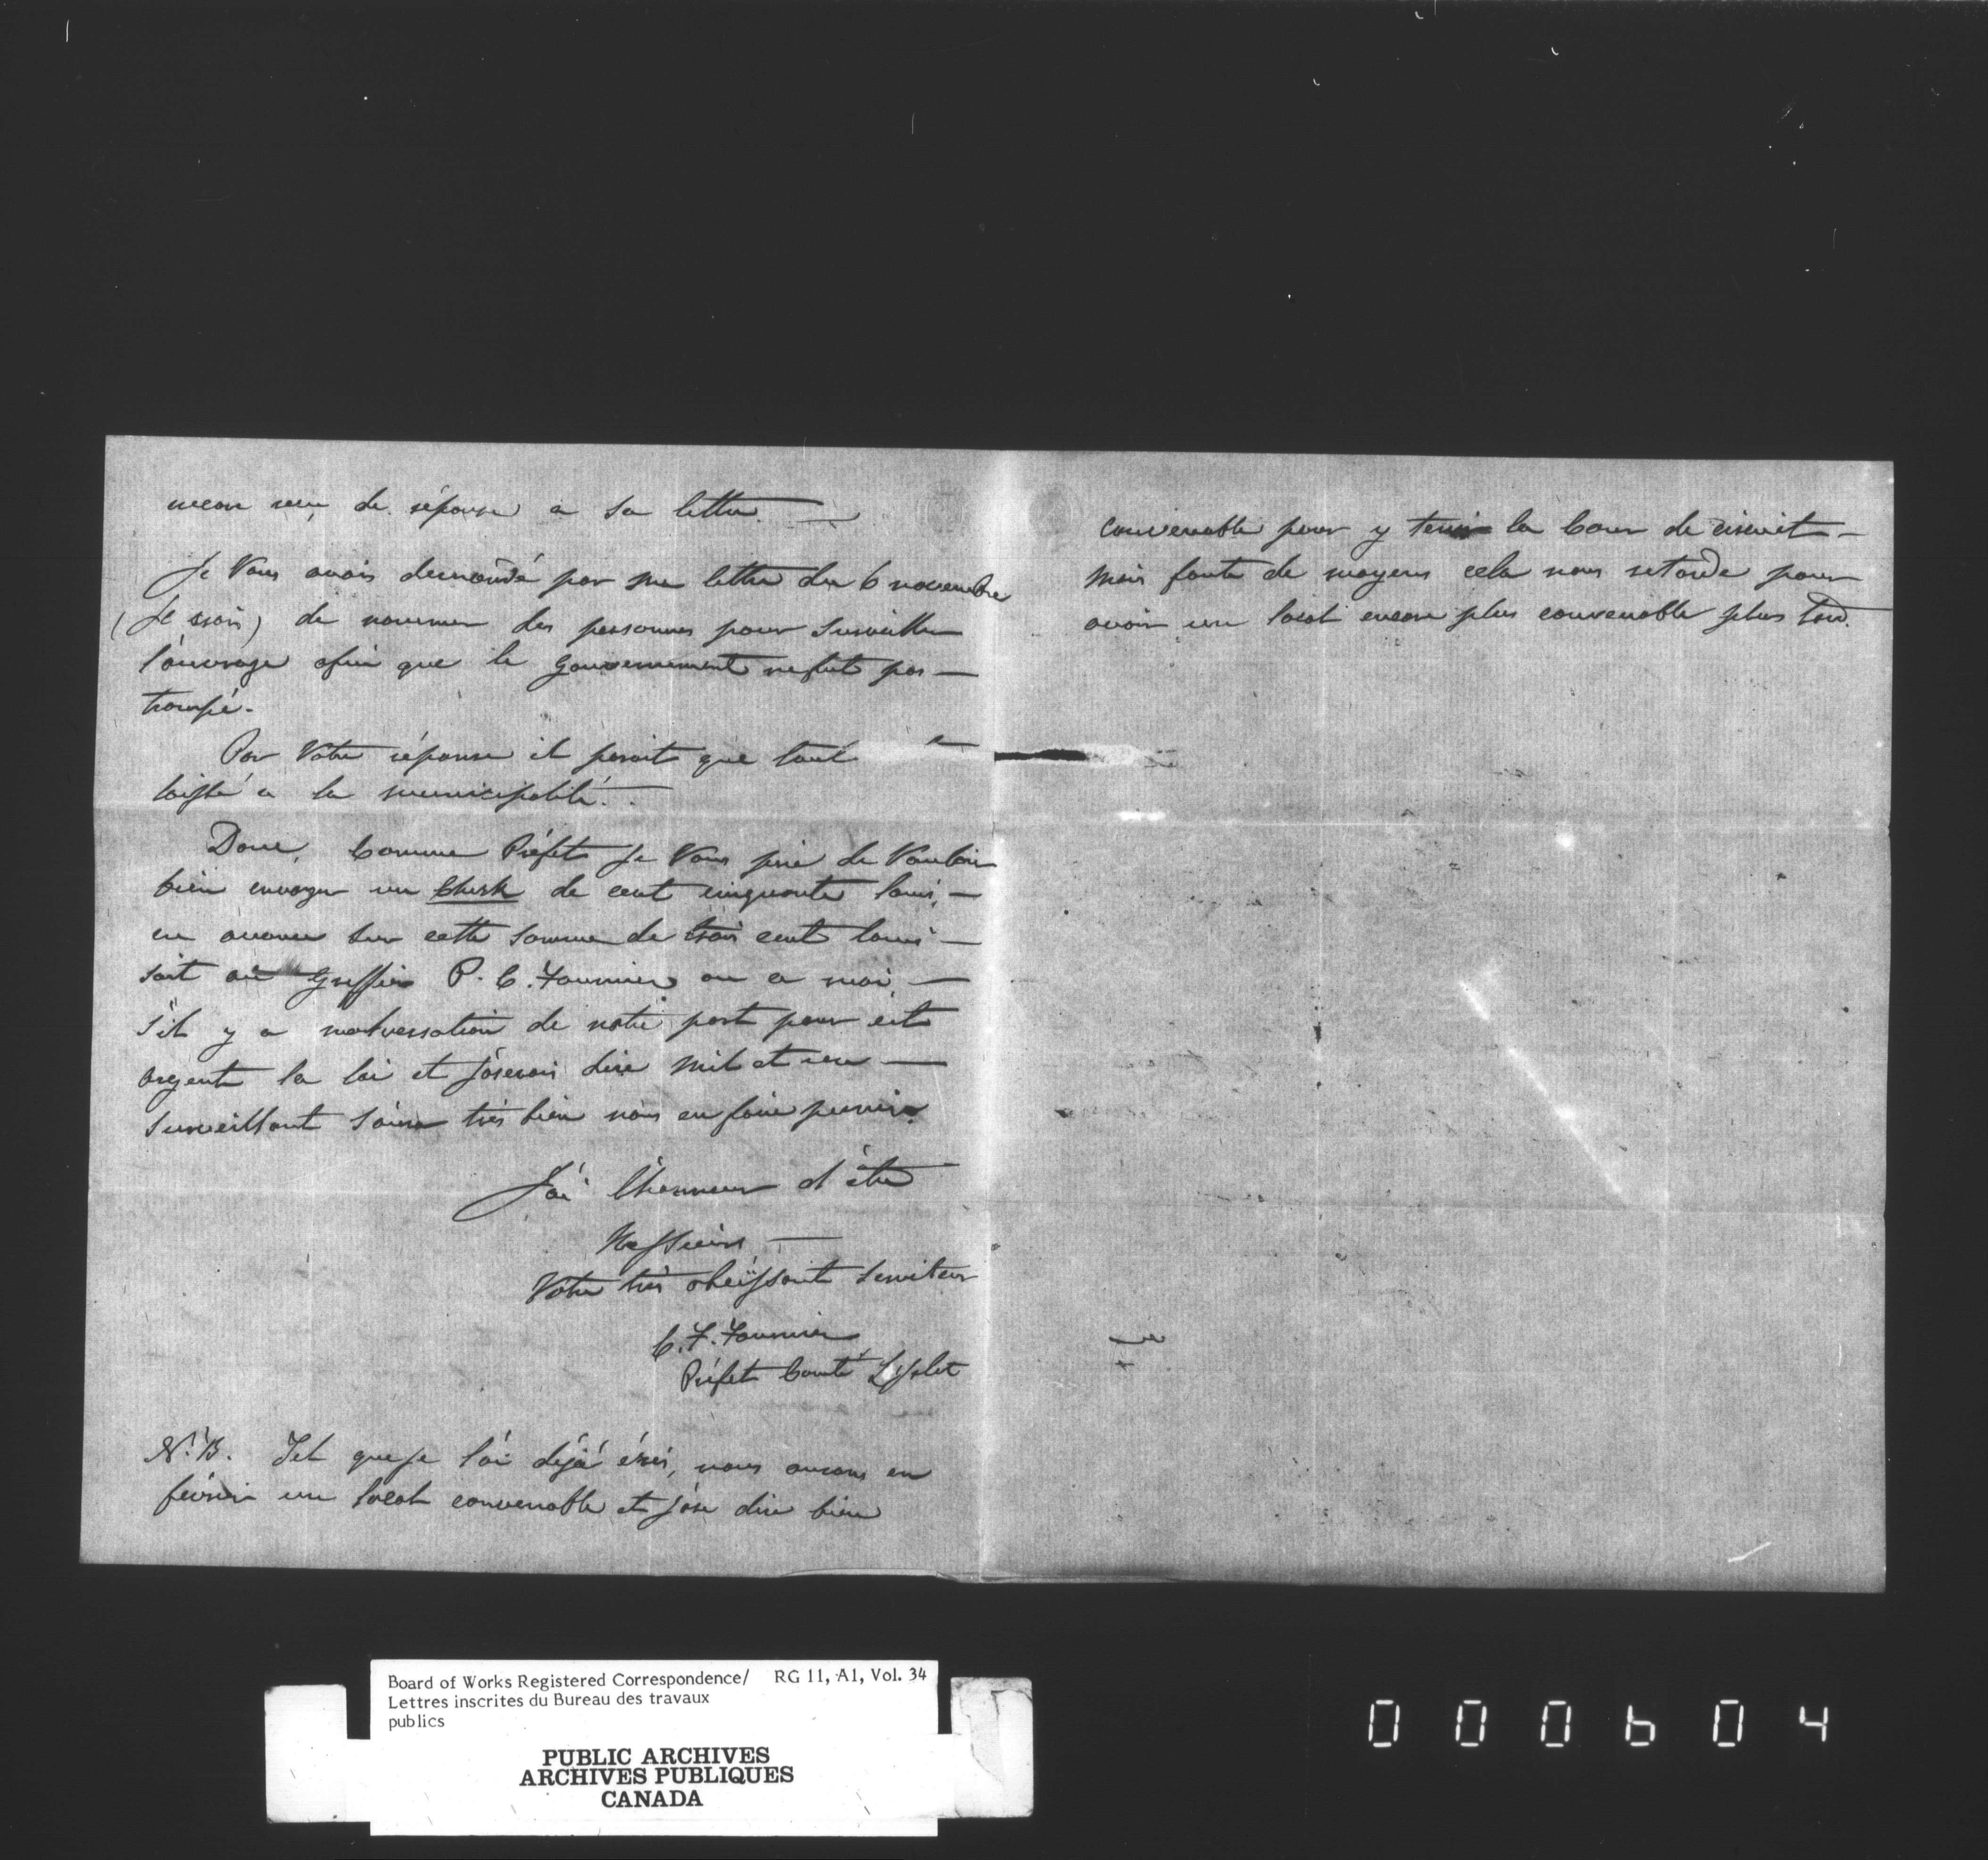 encore reçu de réponse a sa lettre. —
Je Vous avais demandé par ma lettre du 6 novembre
(Je crois) de nommer des personnes pour surveiller
l'ouvrage afin que le gouvernement ne fut pas —
trompé.
Par Votre réponse il parait que tout
laissé a la municipalité.
Donc, Comme Préfet Je Vous prie de Vouloir
bien envoyer un Cheek de cent cinquante louis, —
en avance sur cette somme de trois cent louis —
soit au Greffier P. C. Fournier ou a moi, —
s'il y a malversation de notre part pour cet
argent la loi et j'oserais dire mil et un —
surveillant saura très bien nous en faire punir.
J'ai l'honneur d'être
Messieurs, —
Votre très obéissant serviteur
C. F. Fournier
Préfet Comté L'Islet
N.B. Tel que je l'ai déjà écris, nous aurons en
février un local convenable et j'ose dire bien
convenable pour y tenir la Cour de circuit —
mais faute de moyens cela nous retarde pour
avoir un local encore plus convenable plus tard.
Board of Works Registered Correspondence/ RG 11, A1, Vol. 34
Lettres inscrites du Bureau des travaux
publics
PUBLIC ARCHIVES
ARCHIVES PUBLIQUES
CANADA
000604